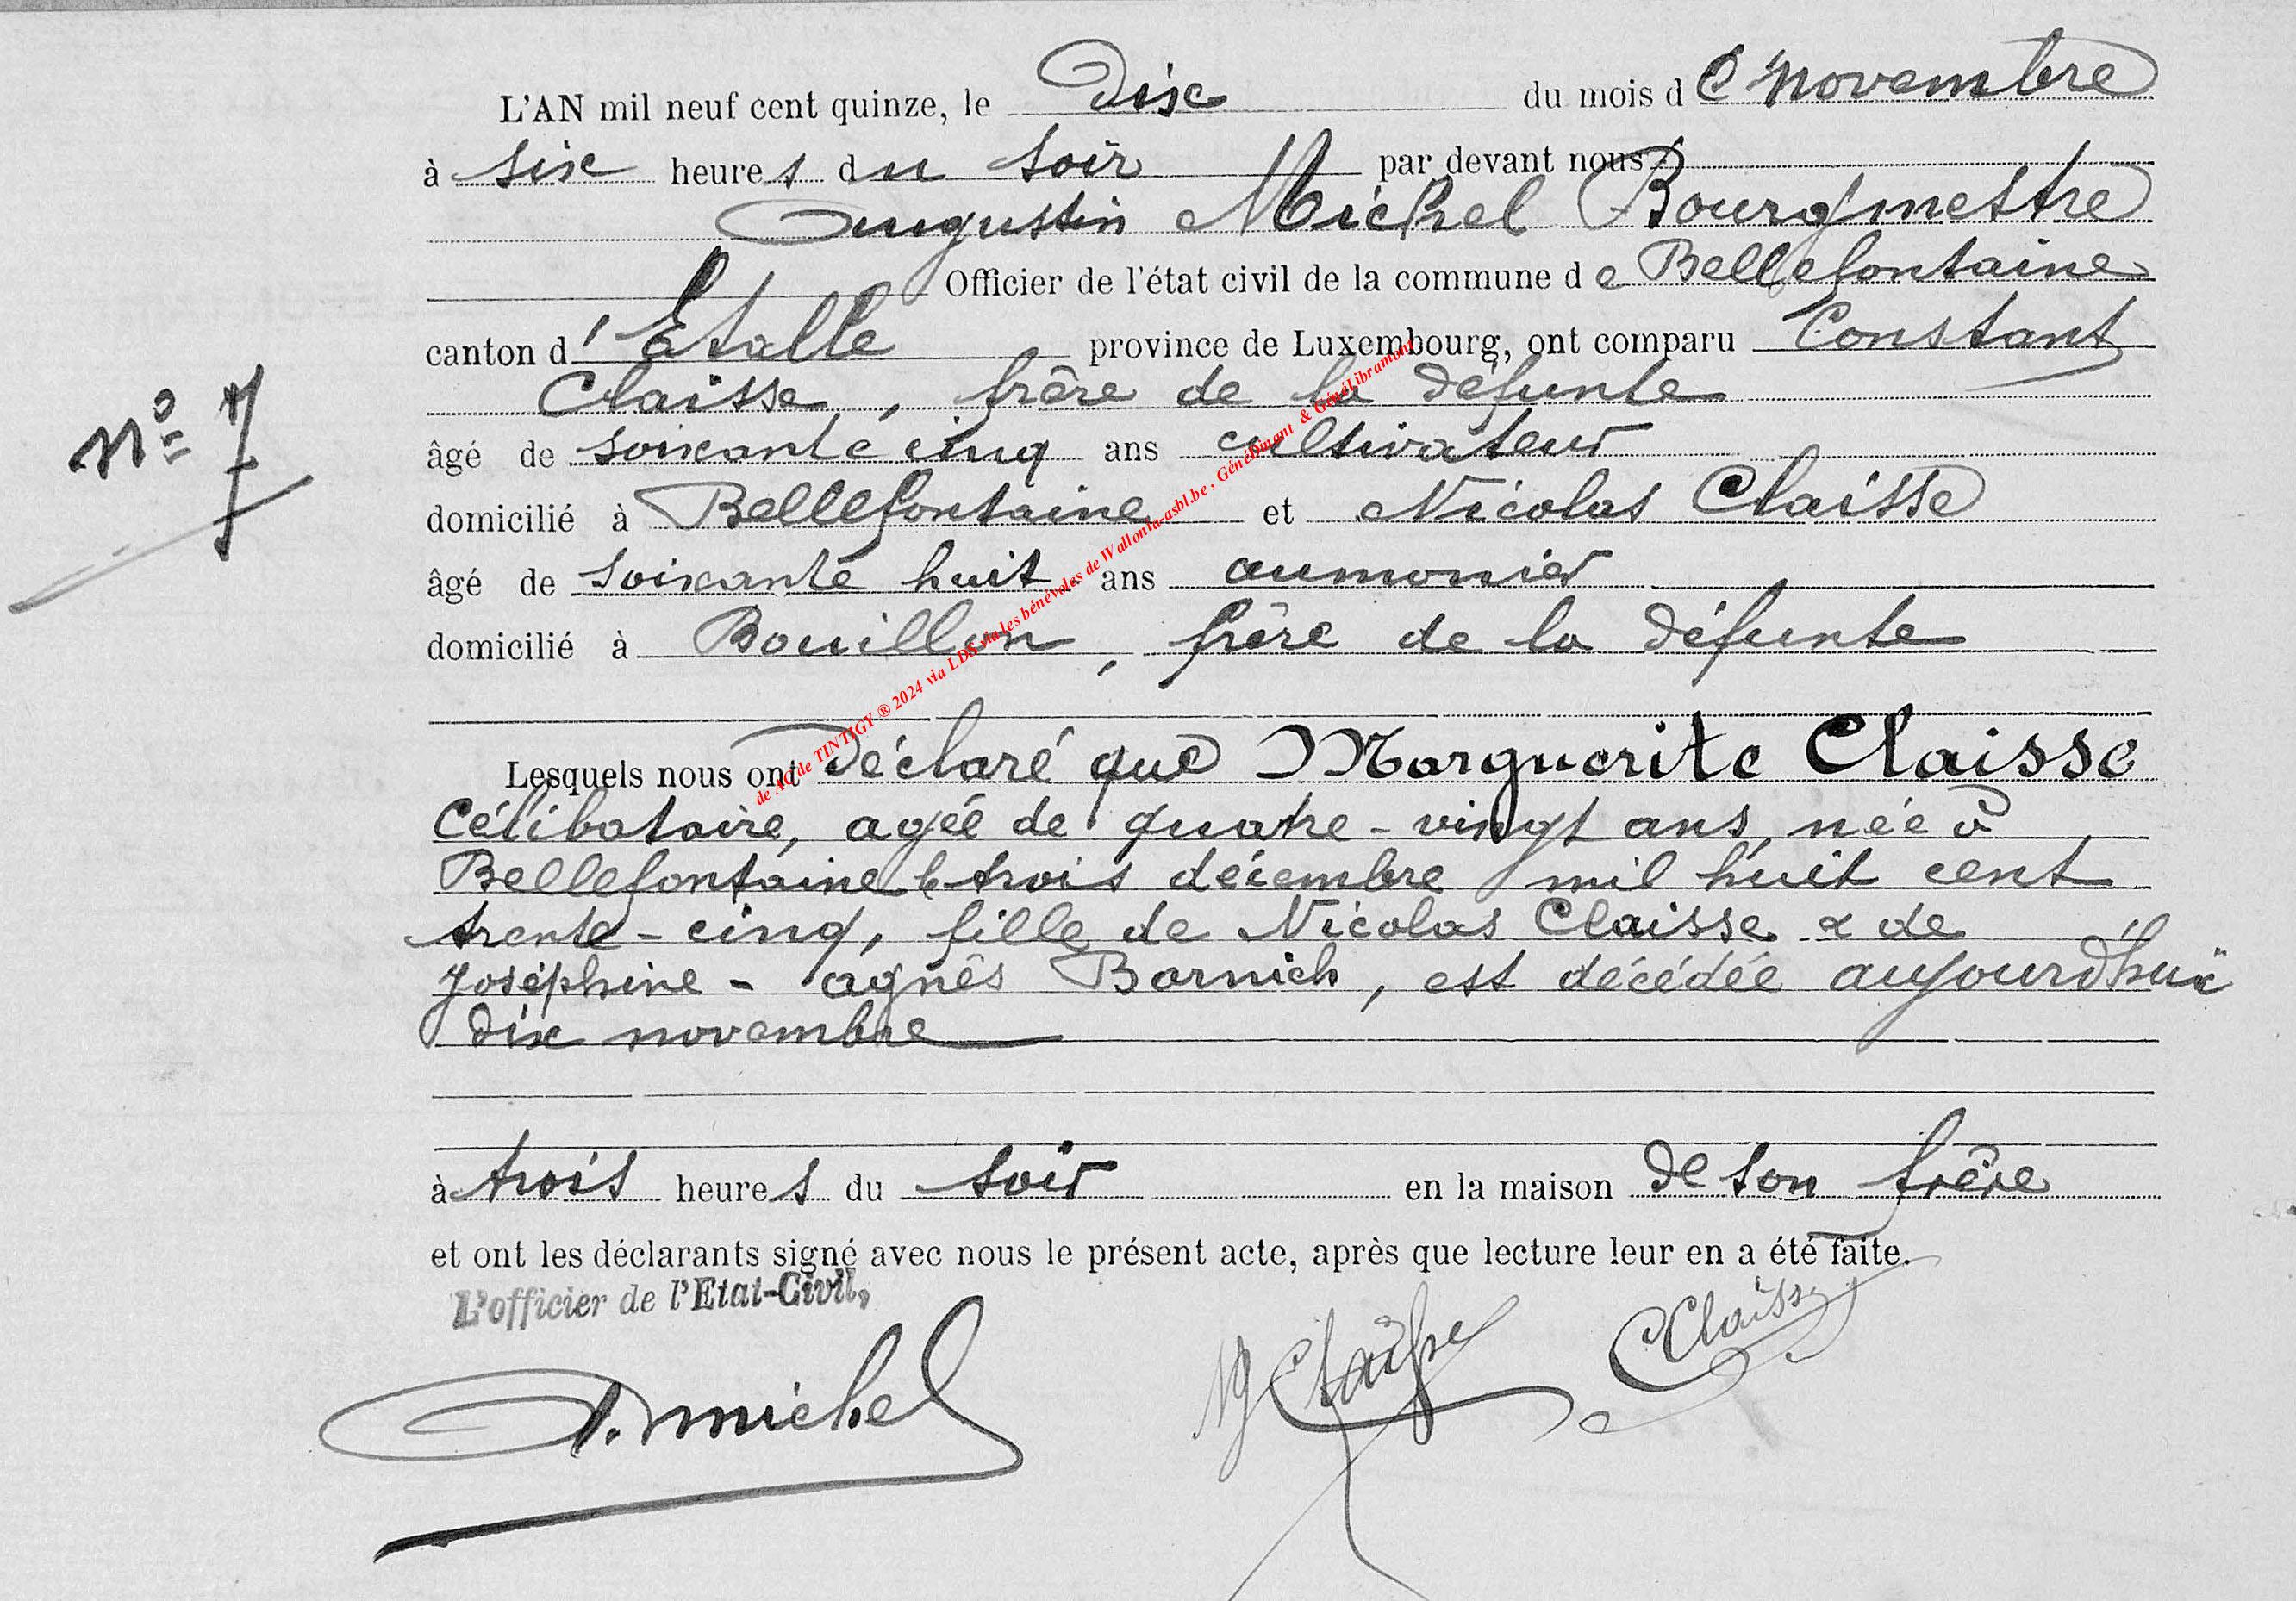 L'AN mil neuf cent quinze, le dix du mois de novembre
à six heures du soir par devant nous
Augustin Michel Bourgmestre
Officier de l'état civil de la commune de Bellefontaine
canton d'Etalle province de Luxembourg, ont comparu Constant
Claisse, frère de la défunte
N° 7
âgé de soixante cinq ans cultivateur
domicilié à Bellefontaine et Nicolas Claisse
âgé de soixante huit ans aumonier
domicilié à Bouillon, frère de la défunte
Lesquels nous ont déclaré que Marguerite Claisse
Célibataire, agée de quatre-vingt ans, née à
Bellefontaine le trois décembre mil huit cent
trente-cinq, fille de Nicolas Claisse & de
Joséphine-Agnès Bornich, est décédée aujourd'hui
dix novembre
à trois heures du soir en la maison de son frère
et ont les déclarants signé avec nous le présent acte, après que lecture leur en a été faite.
L'officier de l'Etat-Civil,
A. Michel
N Claisse
C Claisse
de AC de TINTIGY ® 2024 via LDS via les bénévoles de Wallonia-asbl.be, GénéDinant & GénéLibramont